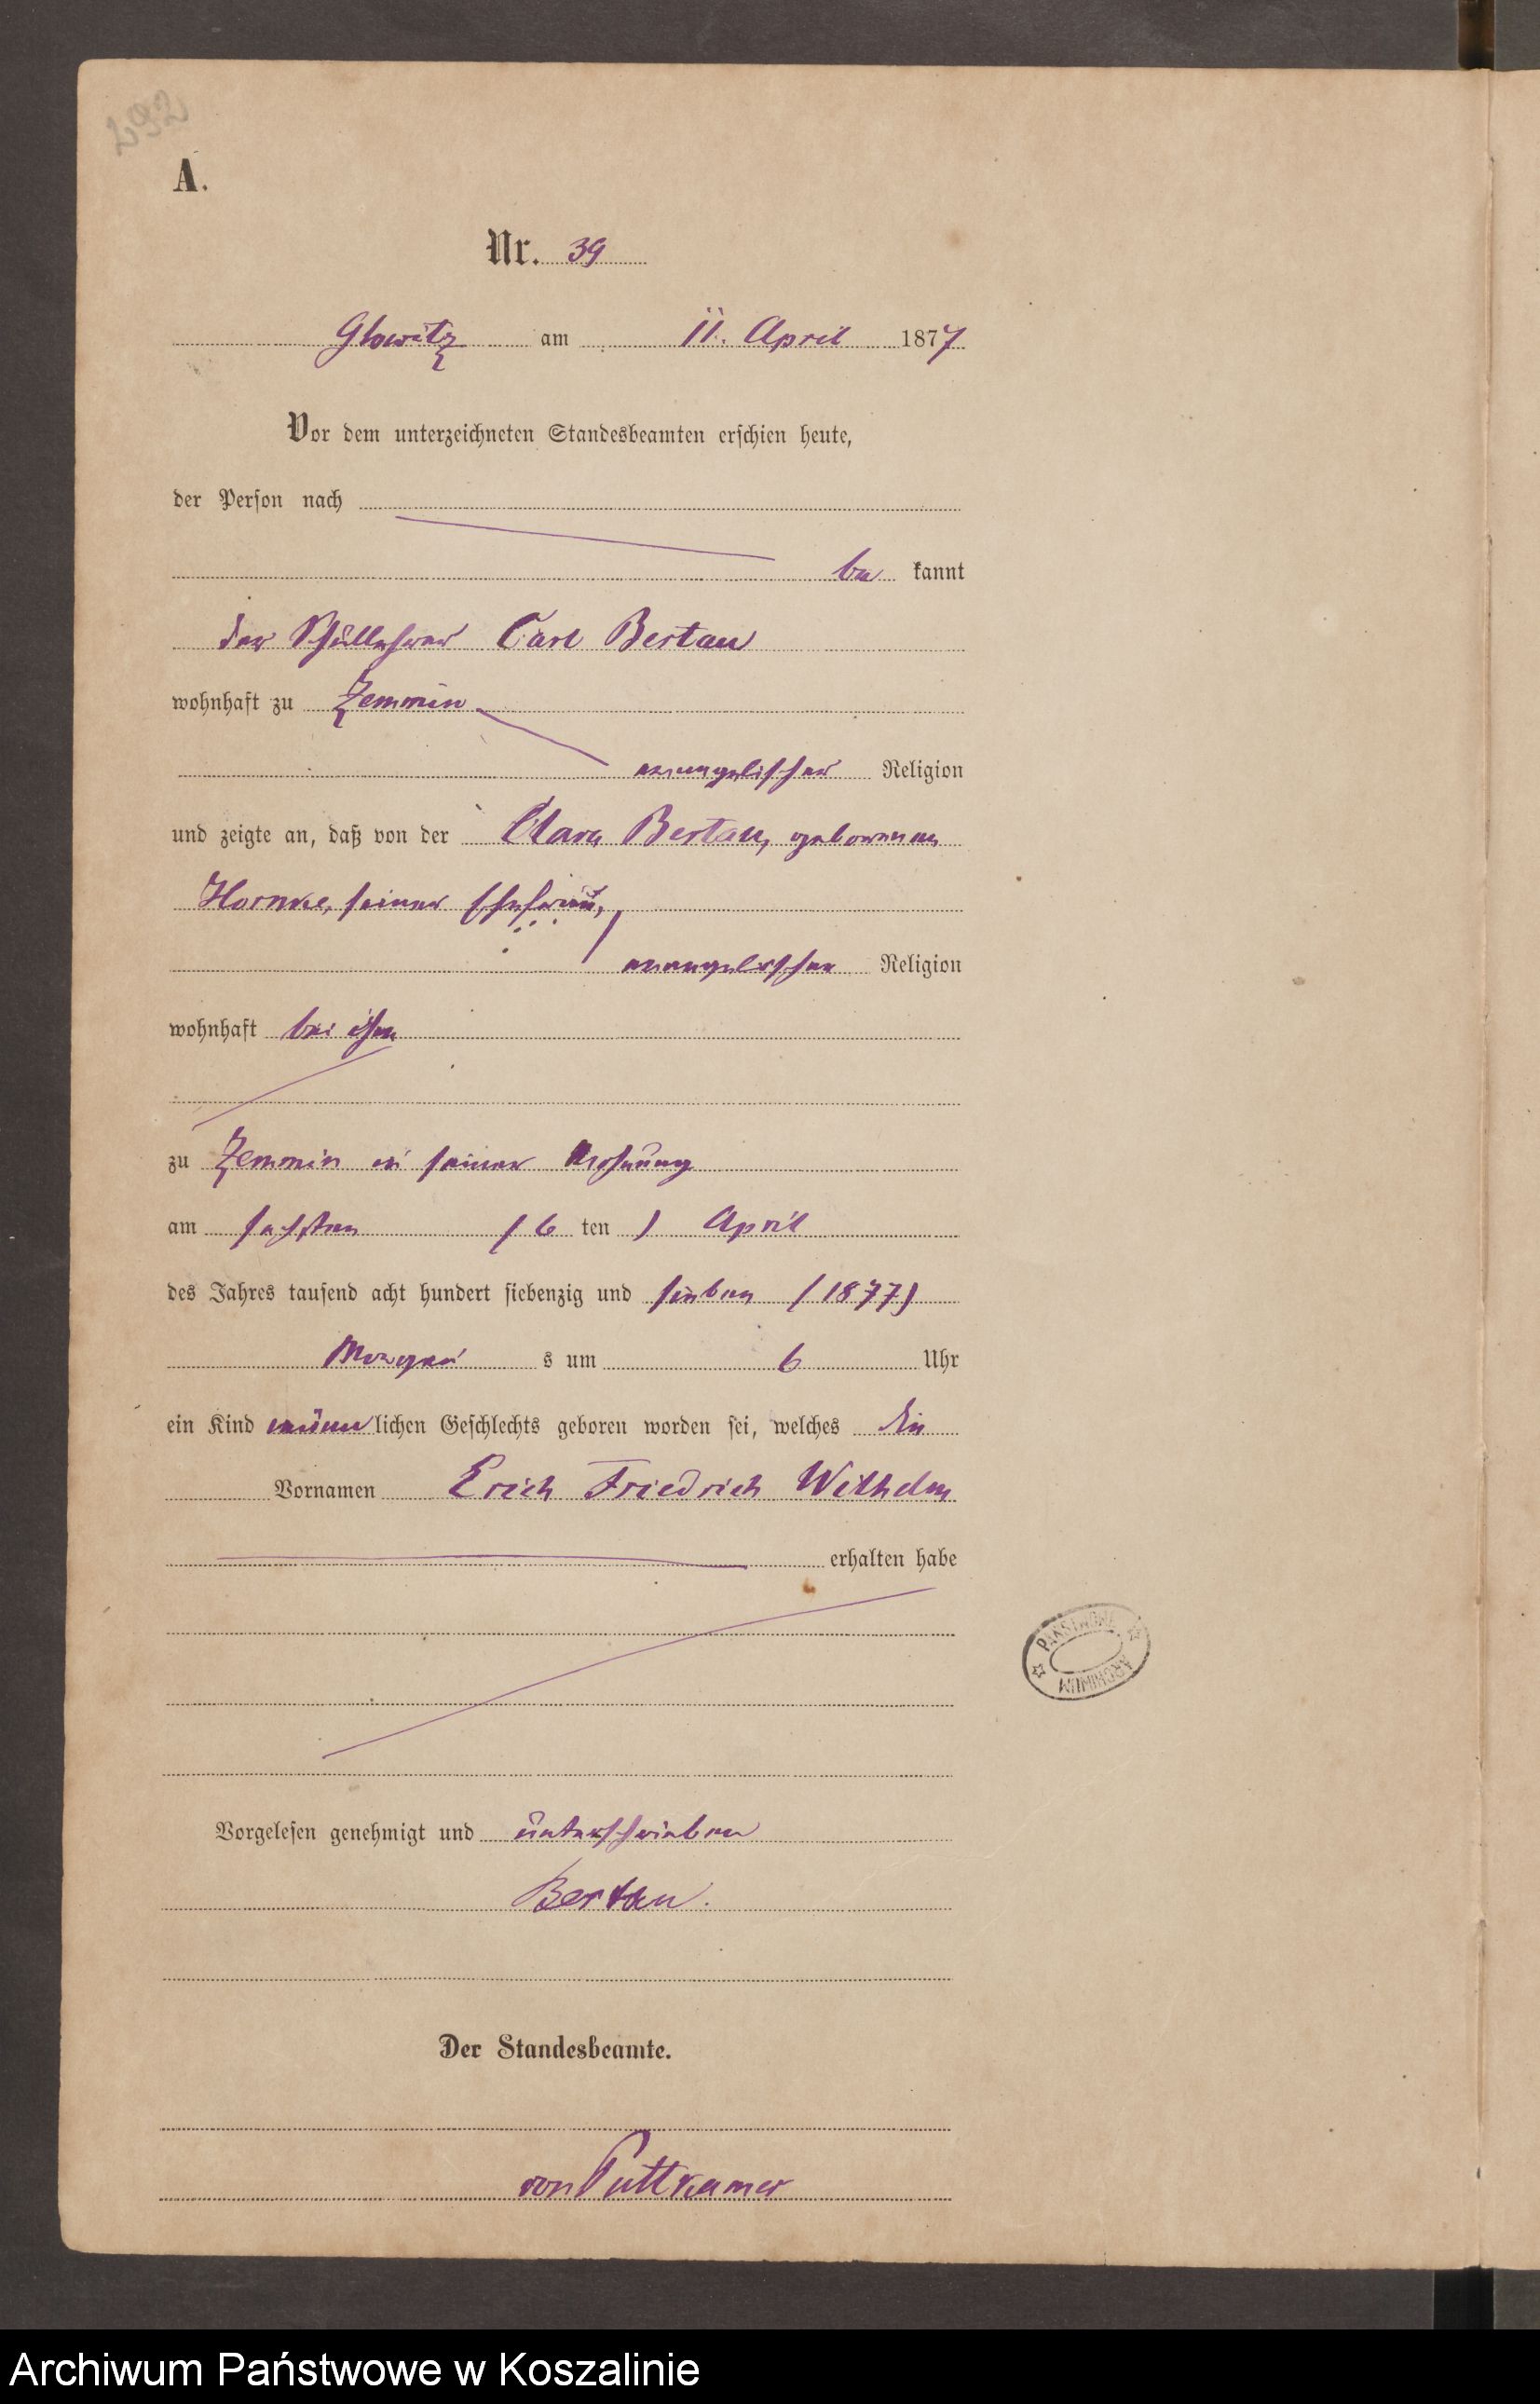 292
A.
Nr. 39
Glowitz am 11. April 1877
Vor dem unterzeichneten Standesbeamten erschien heute,
der Person nach
be kannt
der Schullehrer Carl Bertau
wohnhaft zu Zemmin
evangelischer Religion
und zeigte an, daß von der Clara Bertau, geborenen
seiner Ehefrau,
evangelischer Religion
wohnhaft bei ihm
zu Zemmin in seiner Wohnung
am sechsten (6 ten ) April
des Jahres tausend acht hundert siebenzig und sieben (1877)
Morgen s um 6 Uhr
ein Kind männ lichen Geschlechts geboren worden sei, welches die
Vornamen Erich Friedrich Wilhelm
erhalten habe
PAŃSTWOWE
ARCHIWUM
Vorgelesen genehmigt und unterschrieben
Bertau.
Der Standesbeamte.
von Puttkamer
Archiwum Państwowe w Koszalinie